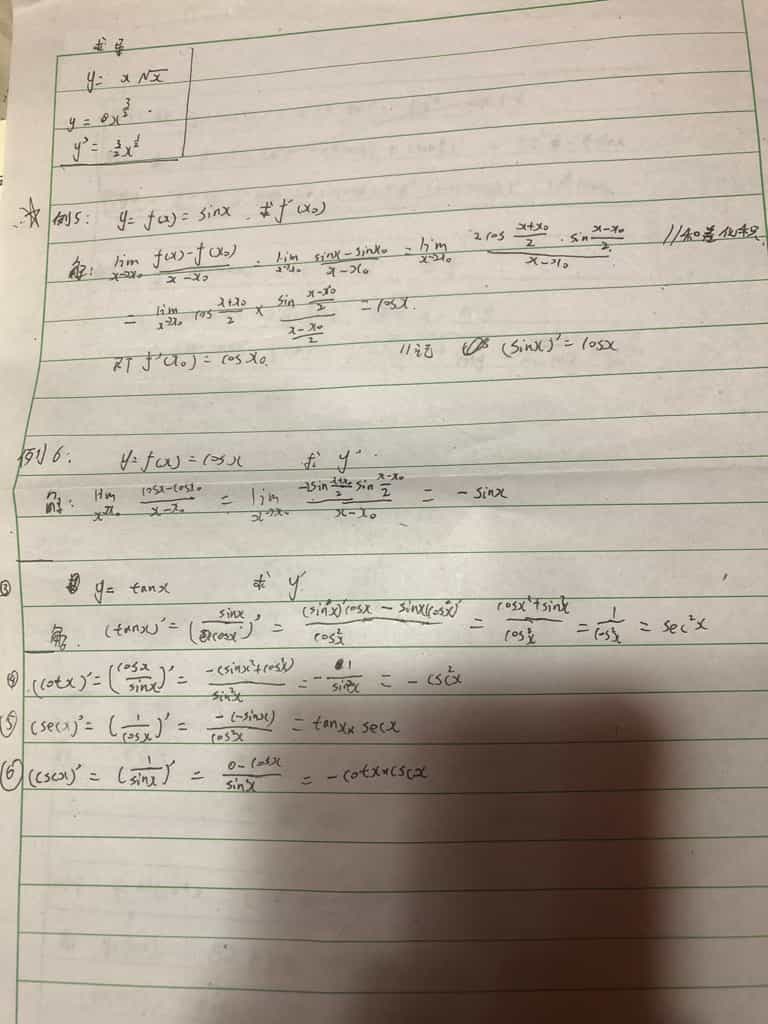 求导
y = x√x
y = x^{3/2}
y' = 3/2 x^{1/2}
☆ 例5: y = f(x) = sinx. 求f'(x₀)
解: lim_{x→x₀} (f(x)-f(x₀))/(x-x₀) = lim_{x→x₀} (sinx-sinx₀)/(x-x₀) = lim_{x→x₀} (2cos (x+x₀)/2 · sin (x-x₀)/2)/(x-x₀) //和差化积
= lim_{x→x₀} cos (x+x₀)/2 × (sin (x-x₀)/2)/((x-x₀)/2) = cosx.
f'(x₀) = cosx₀. //记 (sinx)' = cosx
例6: y = f(x) = cosx 求 y'
解: lim_{x→x₀} (cosx-cosx₀)/(x-x₀) = lim_{x→x₀} (-2sin (x+x₀)/2 sin (x-x₀)/2)/(x-x₀) = -sinx
③ y = tanx 求 y'
解. (tanx)' = (sinx/cosx)' = ((sinx)'cosx - sinx(cosx)')/cos²x = (cosx²+sin²x)/cos²x = 1/cos²x = sec²x
④ (cotx)' = (cosx/sinx)' = -(sinx²+cos²x)/sin²x = -1/sin²x = -csc²x
⑤ (secx)' = (1/cosx)' = -(-sinx)/cos²x = tanx × secx
⑥ (cscx)' = (1/sinx)' = (0-cosx)/sin²x = -cotx×cscx